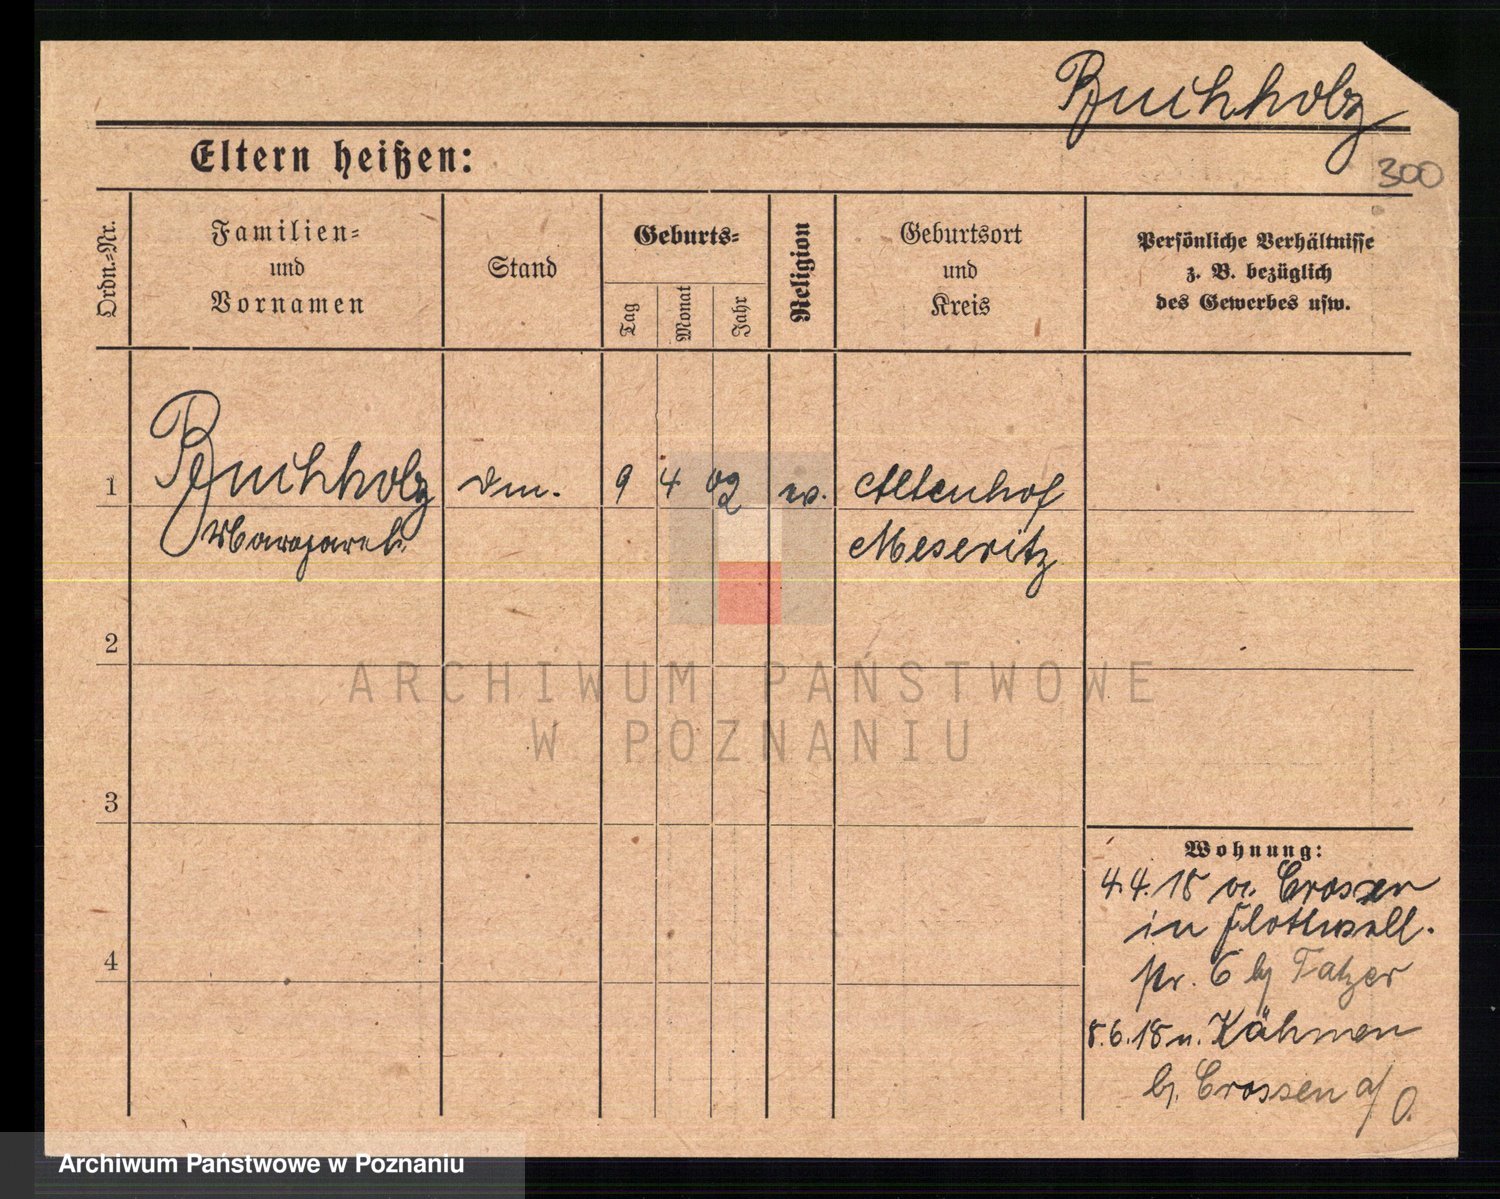 Buchholz
300
Eltern heißen:
Ordn.-Nr.
Familien-
und
Vornamen
Stand
Geburts-
Tag
Monat
Jahr
Religion
Geburtsort
und
Kreis
Persönliche Verhältnisse
z. B. bezüglich
des Gewerbes usw.
1
Buchholz
Margareth.
9
4
02
ev.
Altenhof
Meseritz
2
3
4
Wohnung:
4.4.18 v. Crossen
in Flottwell.
str. 6 bj Tatzer
8.6.18 n. Kähmen
bj. Crossen a/O.
ARCHIWUM PAŃSTWOWE
W POZNANIU
Archiwum Państwowe w Poznaniu